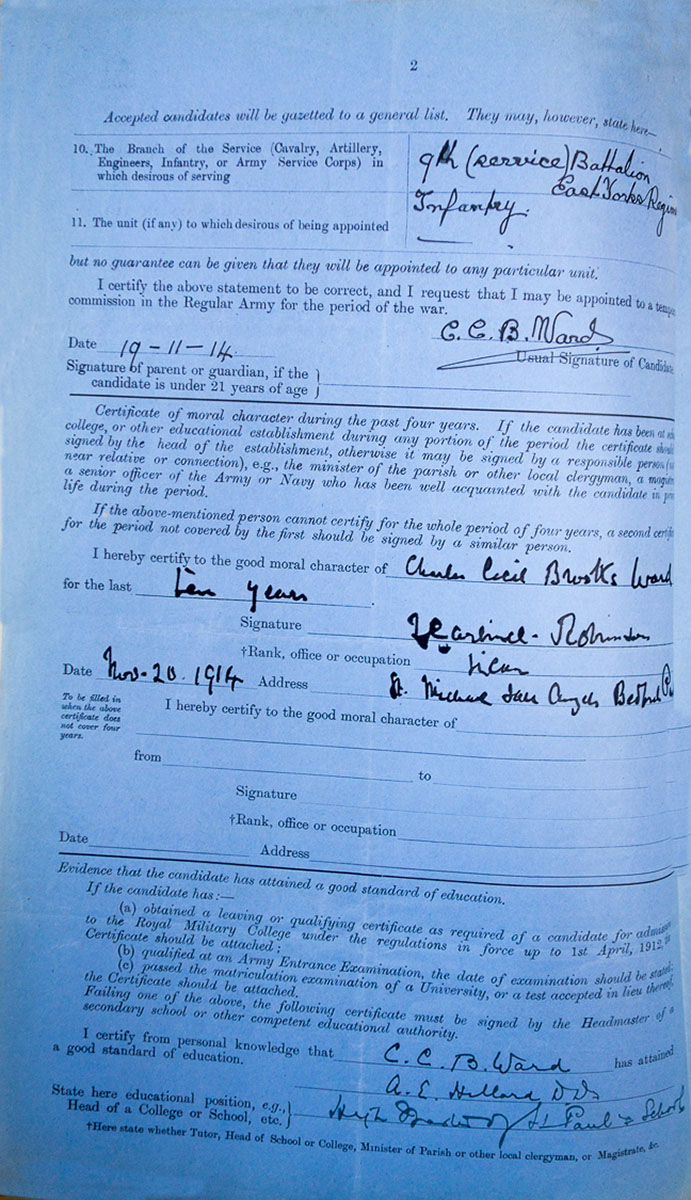 2
Accepted candidates will be gazetted to a general list. They may, however, state here—
10. The Branch of the Service (Cavalry, Artillery,
Engineers, Infantry, or Army Service Corps) in
which desirous of serving
9th (service) Battalion
East Yorks Regim
Infantry.
11. The unit (if any) to which desirous of being appointed
but no guarantee can be given that they will be appointed to any particular unit.
I certify the above statement to be correct, and I request that I may be appointed to a temp
commission in the Regular Army for the period of the war.
C. C. B. Ward
Date 19-11-14.
Usual Signature of Candidate
Signature of parent or guardian, if the
candidate is under 21 years of age
Certificate of moral character during the past four years. If the candidate has been at
college, or other educational establishment during any portion of the period the certificate
signed by the head of the establishment, otherwise it may be signed by a responsible person
near relative or connection), e.g., the minister of the parish or other local clergyman, a
a senior officer of the Army or Navy who has been well acquainted with the candidate in
life during the period.
If the above-mentioned person cannot certify for the whole period of four years, a second certifi
for the period not covered by the first should be signed by a similar person.
I hereby certify to the good moral character of Charles Cecil Brooks Ward
for the last ten years.
Signature Robinson
†Rank, office or occupation Vicar
Date Nov. 20. 1914 Address St. Michael Angels Bedford
To be filled in
when the above
certificate does
not cover four
years.
I hereby certify to the good moral character of
from
to
Signature
†Rank, office or occupation
Date
Address
Evidence that the candidate has attained a good standard of education.
If the candidate has:—
(a) obtained a leaving or qualifying certificate as required of a candidate for admiss
to the Royal Military College under the regulations in force up to 1st April, 1912,
Certificate should be attached;
(b) qualified at an Army Entrance Examination, the date of examination should be stated
(c) passed the matriculation examination of a University, or a test accepted in lieu thereof
the Certificate should be attached.
Failing one of the above, the following certificate must be signed by the Headmaster of a
secondary school or other competent educational authority.
I certify from personal knowledge that C. C. B. Ward has attained
a good standard of education.
A. E. Hillard D.D.
State here educational position, e.g.,
Head of a College or School, etc.
High Master of St Paul's School
†Here state whether Tutor, Head of School or College, Minister of Parish or other local clergyman, or Magistrate, &c.